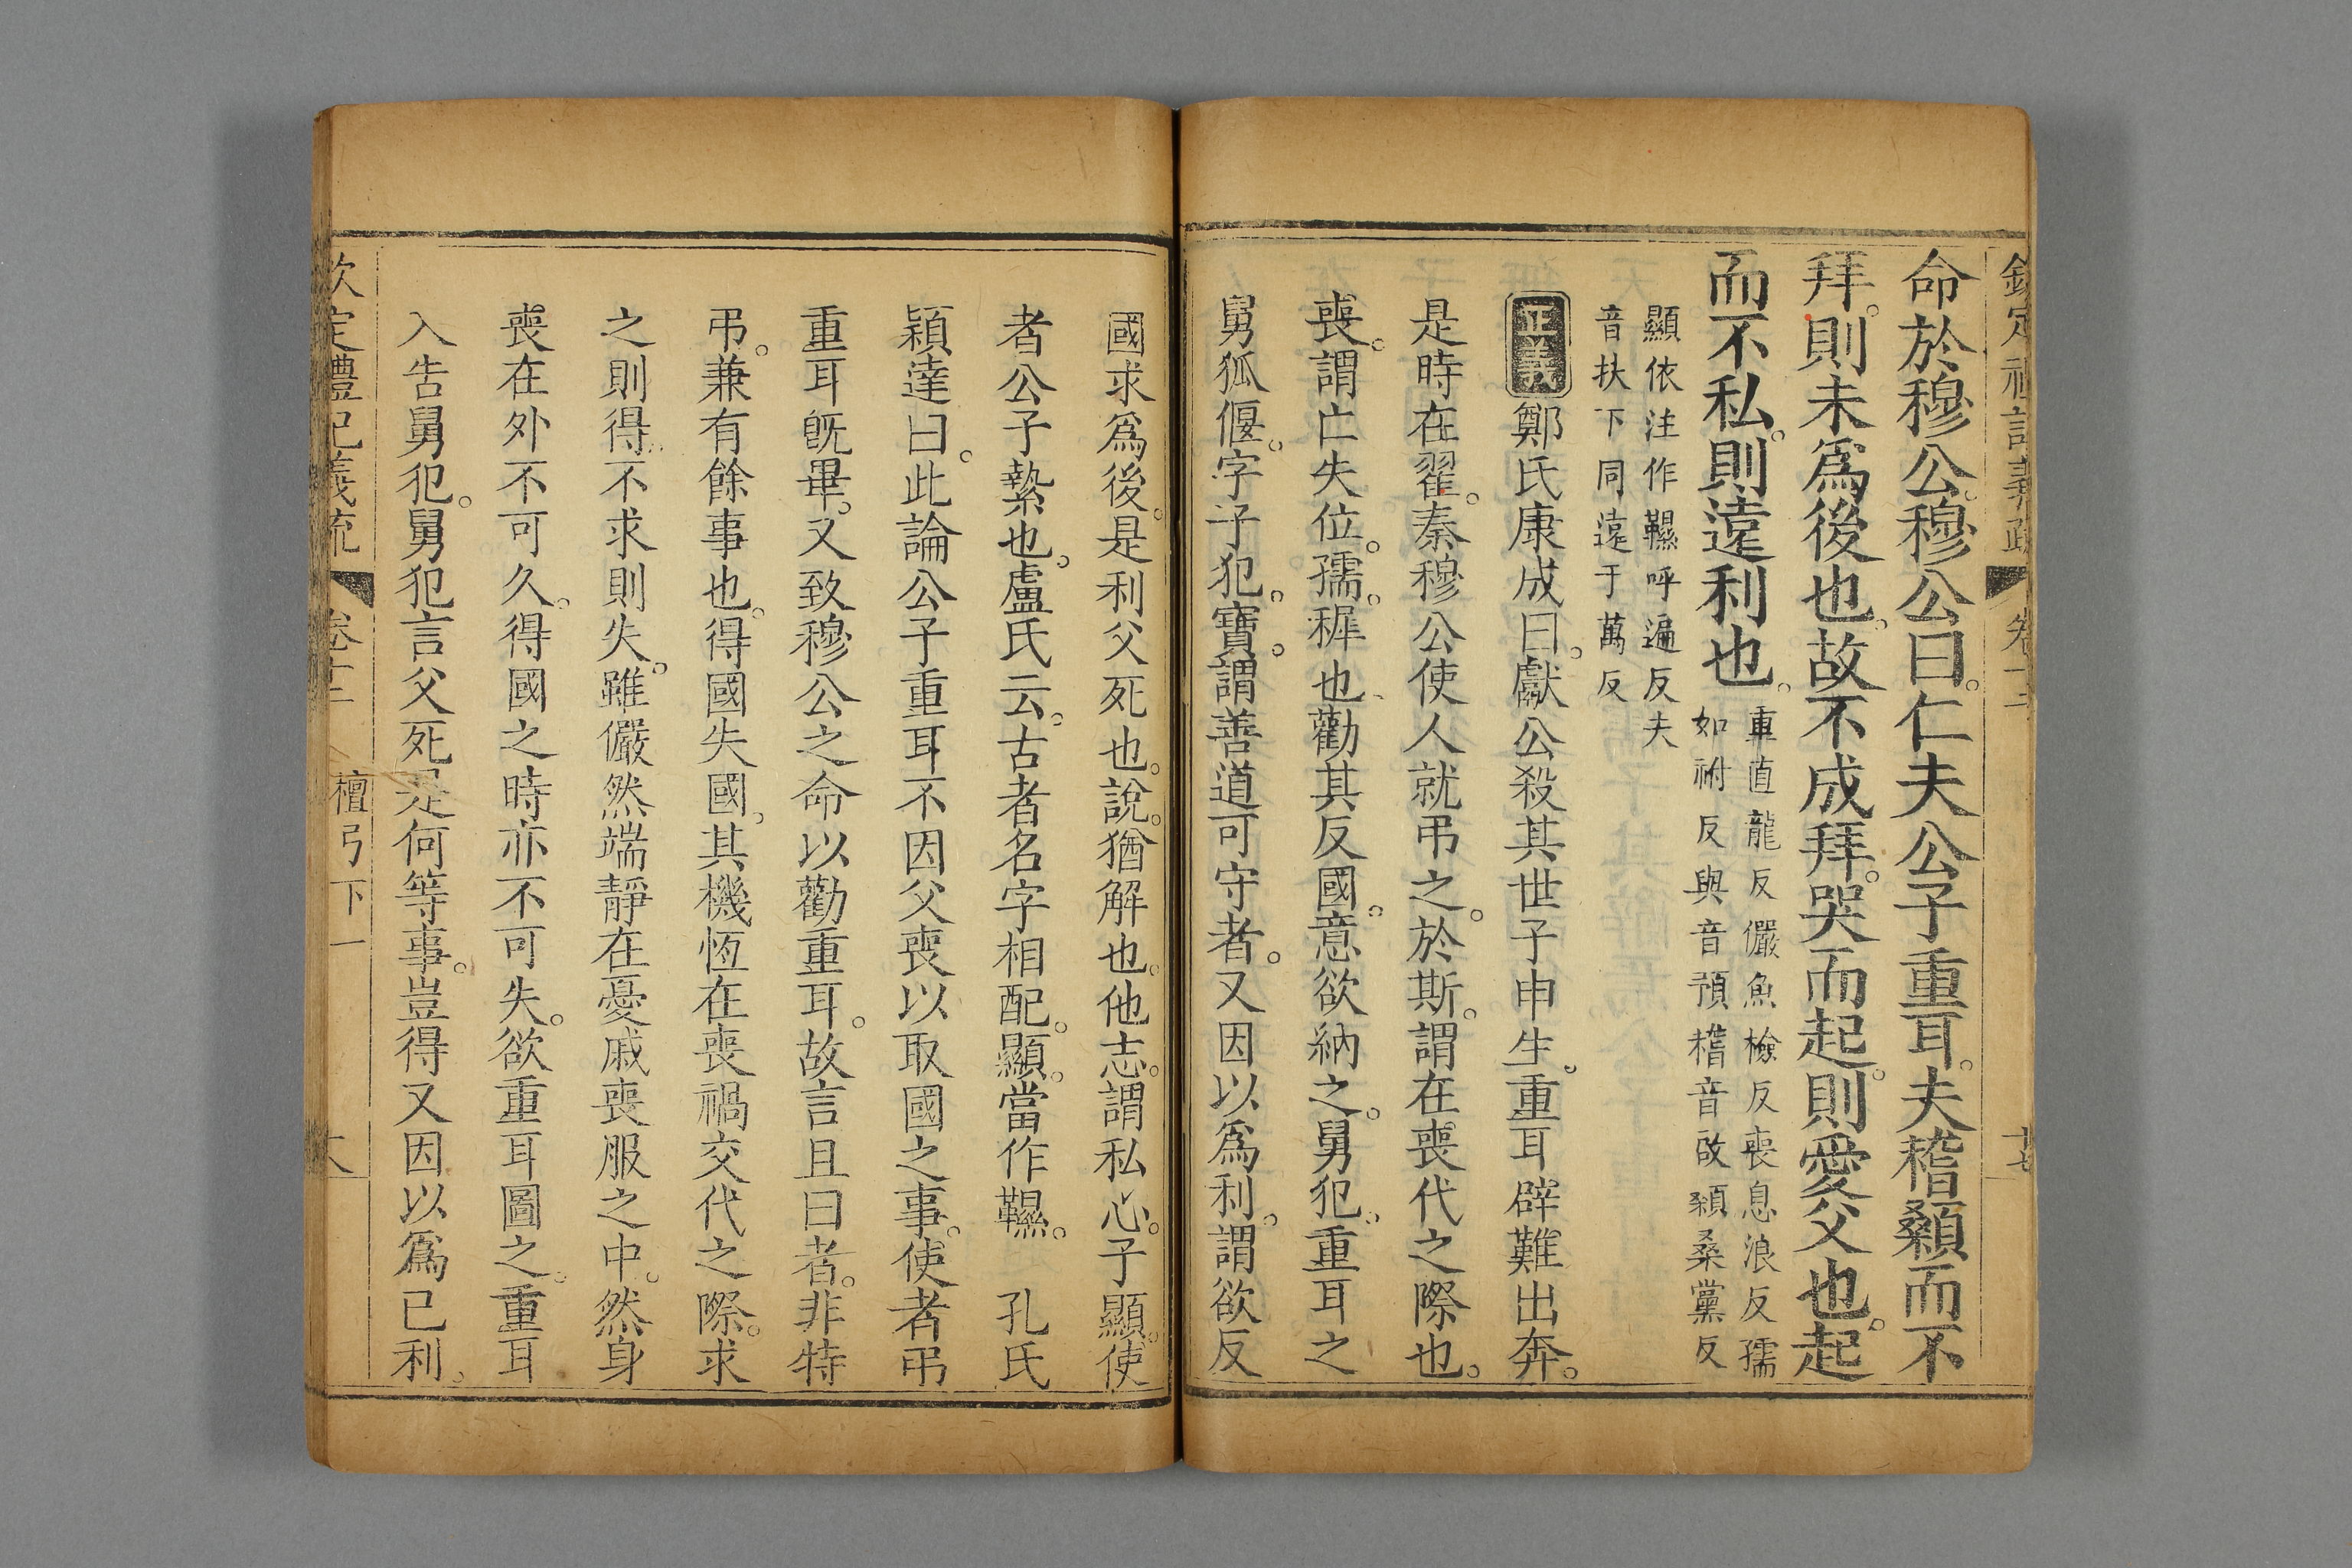 欽定禮記義疏 卷十二 十七
命於穆公穆公曰仁夫公子重耳夫稽顙而不
拜則未爲後也故不成拜哭而起則愛父也起
而不私則遠利也
重直龍反儼魚檢反喪息浪反孺
如樹反與音預稽音啟顙桑黨反
顯依注作韅呼遍反夫
音扶下同遠于萬反
正義 鄭氏康成曰獻公殺其世子申生重耳辟難出奔
是時在翟秦穆公使人就弔之於斯謂在喪代之際也
喪謂亡失位孺穉也勸其反國意欲納之舅犯重耳之
舅狐偃字子犯寶謂善道可守者又因以爲利謂欲反
國求爲後是利父死也說猶解也他志謂私心子顯使
者公子縶也盧氏云古者名字相配顯當作韅 孔氏
穎達曰此論公子重耳不因父喪以取國之事使者弔
重耳旣畢又致穆公之命以勸重耳故言且曰者非特
弔兼有餘事也得國失國其機恆在喪禍交代之際求
之則得不求則失雖儼然端靜在憂戚喪服之中然身
喪在外不可久得國之時亦不可失欲重耳圖之重耳
入告舅犯舅犯言父死是何等事豈得又因以爲已利
欽定禮記義疏 卷十二 檀弓下一